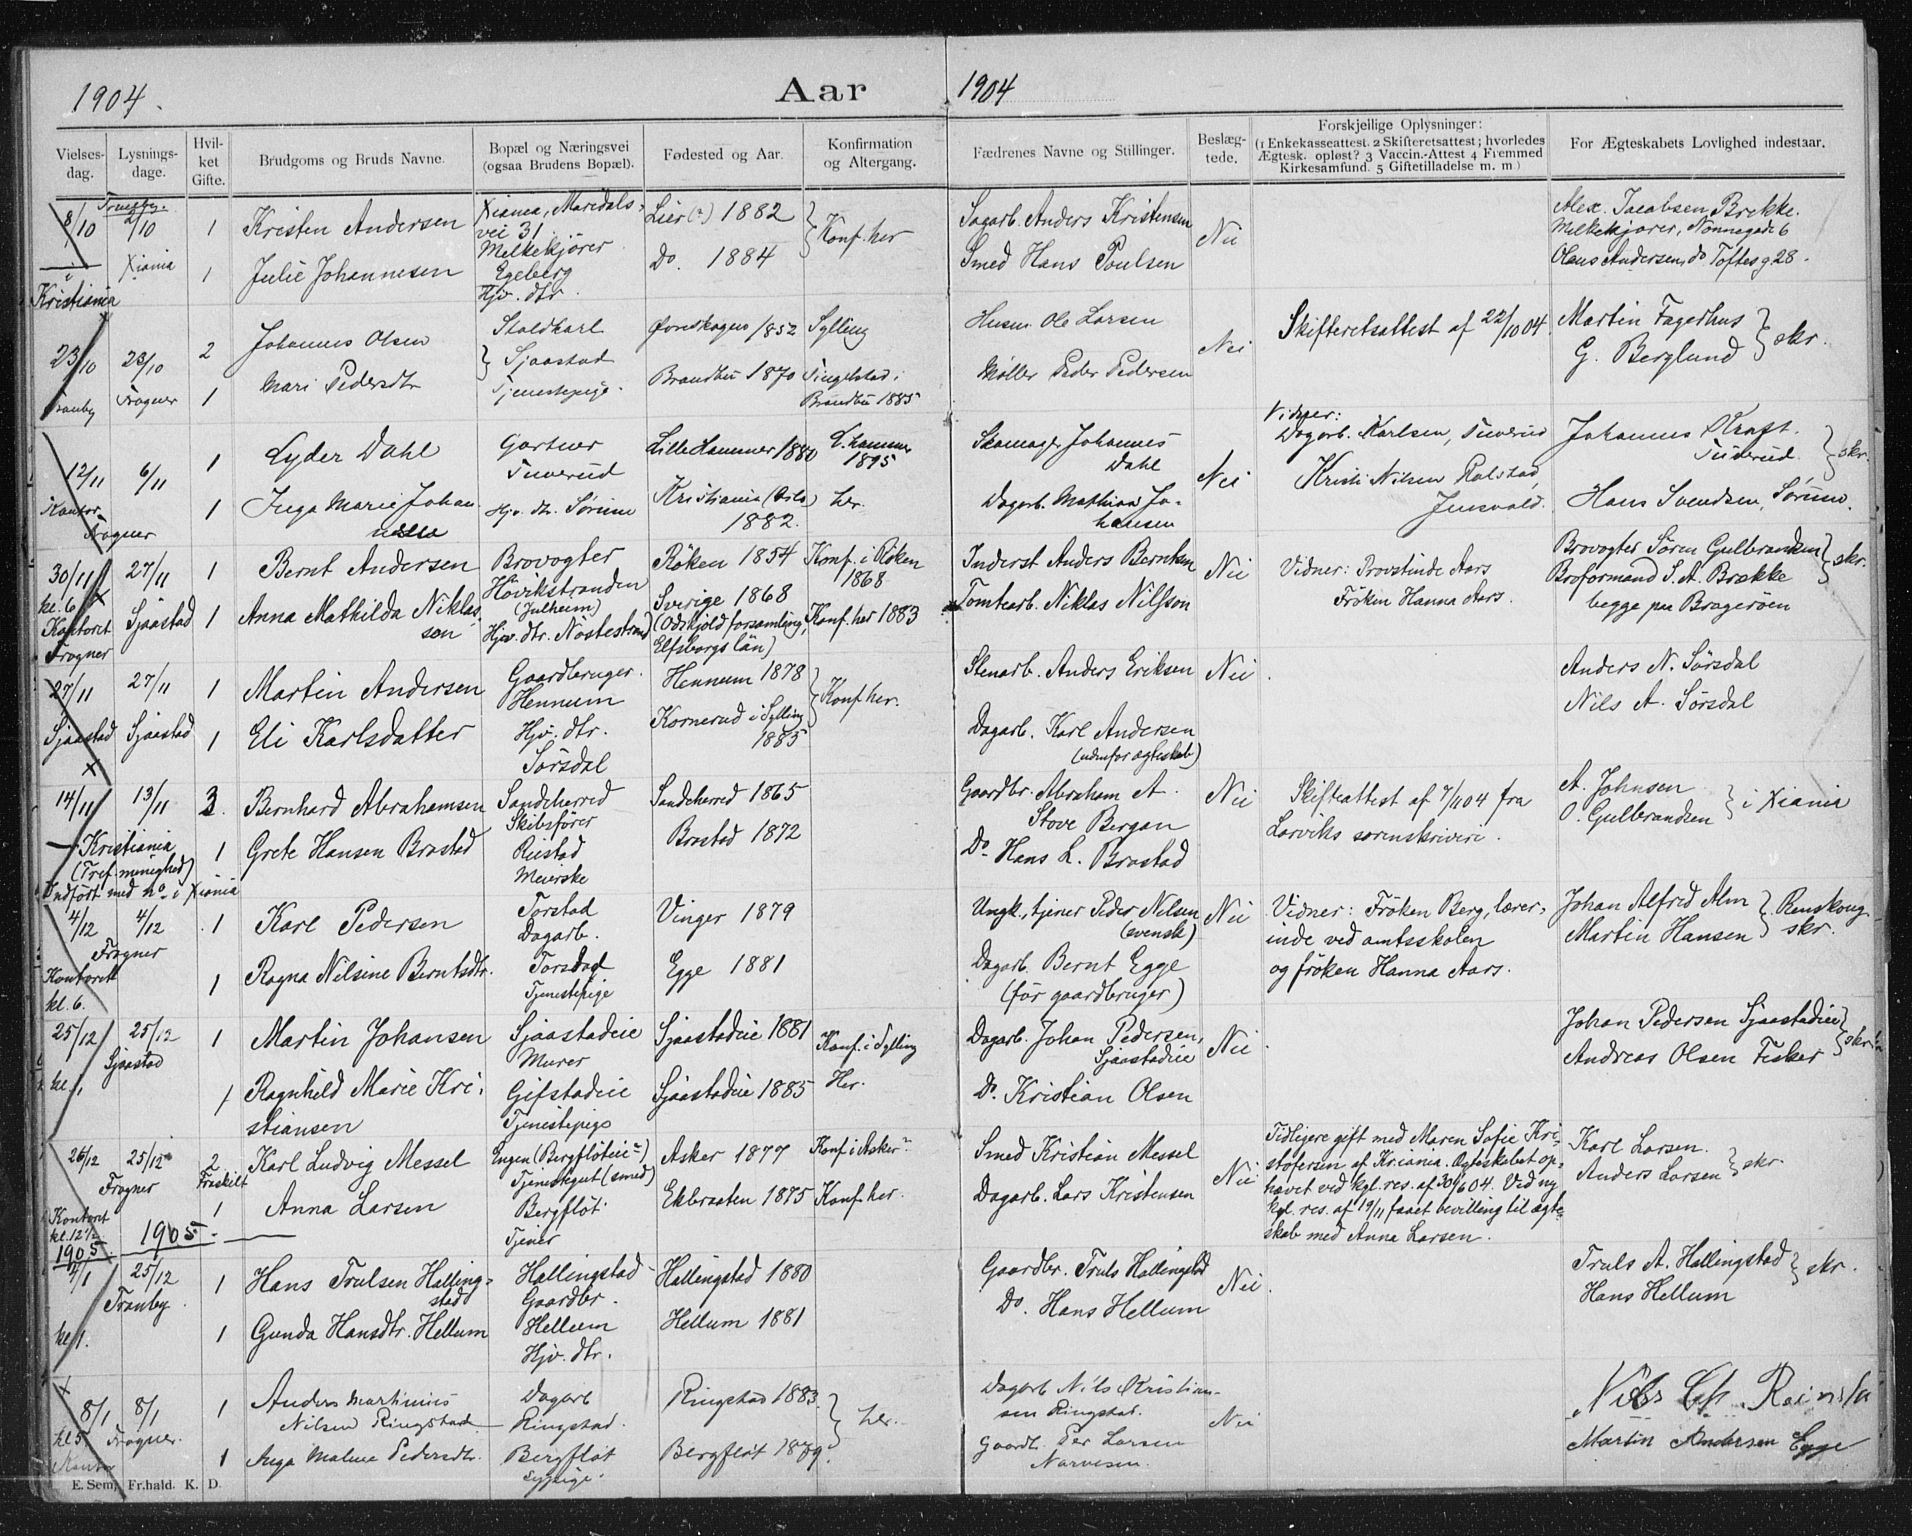 1904.
Aar
1904
Vielses-dag.
Lysnings-dage.
Hvil-ket Gifte.
Brudgoms og Bruds Navne.
Bopæl og Næringsvei (ogsaa Brudens Bopæl).
Fødested og Aar.
Konfirmation og Altergang.
Fædrenes Navne og Stillinger.
Beslæg-tede.
Forskjellige Oplysninger:
(1 Enkekasseattest. 2 Skifteretsattest; hvorledes
Ægtesk. opløst? 3 Vaccin.-Attest 4 Fremmed
Kirkesamfund. 5 Giftetilladelse m. m)
For Ægteskabets Lovlighed indestaar.
8/10
i
Kristiania
Tranby.
2/10
Xiania
1
Kristen Andersen
1
Julie Johannesen
Xiania, Maridals-
vei 31
Melkekjører
Egeberg
Hjv. dtr.
Lier (?) 1882
Do. 1884
Konf. her
Sagarb. Anders Kristensen
Smed Hans Poulsen
Nei
Alex. Jacobsen Brekke.
Melkekjører, Nonnegade 6
Olaus Andersen, do Toftesg 28.
23/10
Tranby
23/10
Frogner
2
Johannes Olsen
1
Mari Pedersdtr
Staldkarl
Sjaastad
Tjenestepige.
Øvreskogen 1852
Brandbu 1870
Sylling
Tingelstad i
Brandbu 1885
Husm. Ole Larsen
Møller Peder Pedersen
Nei
Skifteretsattest af 22/10 04.
Martin Fagerhus
G. Berglund
skr.
12/11
Kontor
Frogner
6/11
1
Lyder Dahl
1
Inga Marie Johan
Gartner
Tuverud
Hjv. dtr. Sørum
Lillehammer 1880
Kristiania (Oslo)
1882.
L. hammer
1895
her.
Skomager Johannes
Dahl
Dagarb. Mathias Jo-
hansen
Nei
Vidner:
Dagarb. Karlsen, Tuverud
Kristi Nilsen
Johannes Kraft.
Tuverud.
Hans Svendsen, Sørum.
skr.
30/11
kl. 6
Kontoret
Frogner
27/11
Sjaastad
1
Bernt Andersen
1
Anna Mathilda Niklas-
son
Brovogter
Høvikstranden
(Julheim)
Hjv. dtr. Nøstestrand
Røken 1854
Sverige 1868
(Odskjold forsamling,
Elfsborgs län)
Konf. i Røken
1868
Konf. her 1883
Inderst Anders Berntsen
Tomtearb. Niklas Nilsson
Nei
Vidner: Provstinde Aars
Frøken Hanna Aars.
Brovogter Søren Gulbrandsen
Broformand S. A. Brække
begge paa Bragerøen
skr.
27/11
Sjaastad
27/11
Sjaastad
1
Martin Andersen
1
Eli Karlsdatter
Gaardbruger.
Hennum
Hjv. dtr.
Sørsdal
Hennum 1878
Kornerud i Sylling
1885
Konf. her.
Stenarb. Anders Eriksen
Dagarb. Karl Andersen
(udenfor ægteskab)
Nei.
Anders N. Sørsdal
Nils A. Sørsdal
14/11
13/11
Kristiania
(Tref. menighed)
Indført med no i Xiania
3.
Bernhard Abrahamsen
1
Grete Hansen Brastad
Sandeherred
Skibsfører
Reistad
Meierske
Sandeherred 1865
Brastad 1872
Gaardbr. Abraham A.
Stove Bergan
Do. Hans L. Brastad
Nei
Skifteattest af 7/11 04 fra
Larviks sorenskriveri.
A. Johnsen
O. Gulbrandsen
i Xiania
4/12
4/12
Frogner
Kontoret
kl. 6.
1
Karl Pedersen
1
Ragna Nilsine Berntsdtr.
Torstad
Dagarb.
Torstad
Tjenestepige
Vinger 1879
Egge 1881
Ungk., tjener Peder Nilsen
(svensk)
Dagarb. Bernt Egge
(før gaardbruger)
Nei
Vidner: Frøken Berg, lærer-
inde ved amtsskolen
og frøken Hanna Aars.
Johan Alfred Alm
Martin Hansen
Renskoug
skr.
25/12
kl. 1
25/12
Sjaastad
1
Martin Johansen
1
Ragnhild Marie Kri-
stiansen
Sjaastadeie
Murer
Gifstadeie
Tjenestepige
Sjaastadeie 1881
Sjaastadeie 1885
Konf. i Sylling
Her.
Dagarb. Johan Pedersen,
Sjaastadeie
Do. Kristian Olsen
Nei.
Johan Pedersen Sjaastadeie
Andreas Olsen Fisker
26/12
25/12
Frogner
Kontoret
kl. 12 1/2
2
Fraskilt
Karl Ludvig Messel
1
Anna Larsen
Engen (Bergfløteie?)
Tjenestegut (smed)
Bergfløt
Tjener
Asker 1877
Ekbraaten 1875
Konf i Asker?
Konf. her.
Smed Kristian Messel
Dagarb. Lars Kristensen
Nei
Tidligere gift med Maren Sofie Kri-
stofersen af Kr.iania. Ægteskabet op-
hævet ved kgl. res. af 30/6 04. Ved ny
kgl. res. af 19/11 faaet bevilling til ægte-
skab med Anna Larsen.
Karl Larsen.
Anders Larsen
skr
1905
1905.
4/1
kl 1.
25/12
Tranby.
1
Hans Trulsen Halling-
stad
1
Gunda Hansdtr. Hellum
Hallingstad
Gaardbr.
Hellum
Hjv. dtr.
Hallingstad 1880
Hellum 1881
Gaardbr. Truls Hallingstad
Do. Hans Hellum
Nei.
Truls A. Hallingstad
Hans Hellum
skr.
8/1
kl 5
Kontor
8/1
Frogner.
1
Anders Martinius
Nilsen Ringstad
1
Inga Maline Pedersdtr.
Dagarb
Ringstad.
Bergfløt
Sypige.
Ringstad 1883
Bergfløt 1879.
her.
Dagarb Nils Kristian-
sen Ringstad.
Gaardb. Per Larsen
Narvesen.
Nei
Martin Andersen Egge
E. Sem, Fr.hald. K. D.